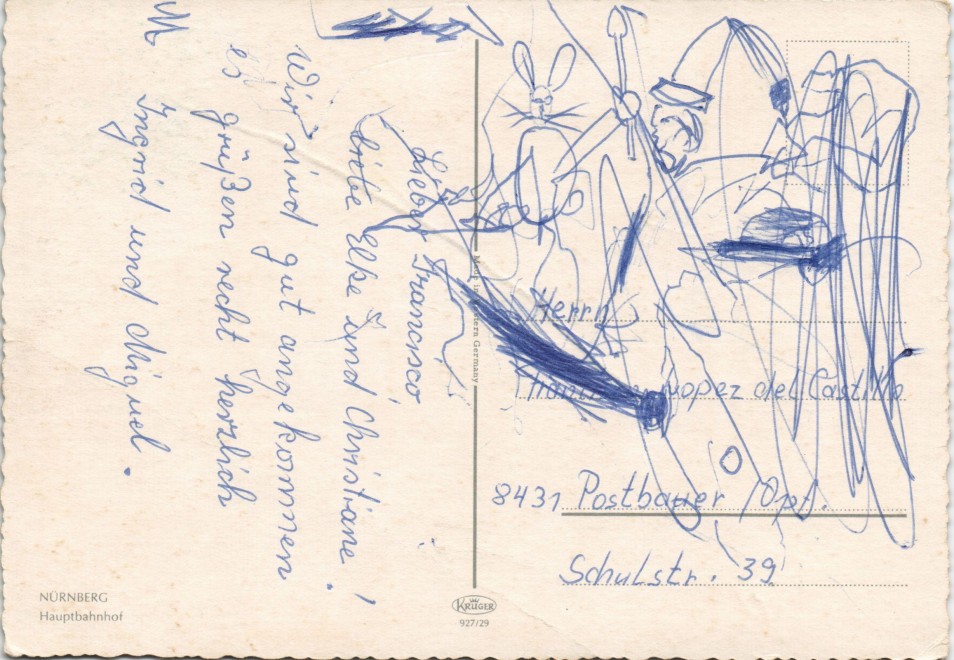 Lieber Francisco,
liebe Elke und Christiane!
Wir sind gut angekommen.
es grüßen recht herzlich
Ingrid und Miguel.
M
Made in Western Germany
Herrn
Lopez del Castillo
8431 Postbauer /Opf.
Schulstr. 39
NÜRNBERG
Hauptbahnhof
KRÜGER
927/29